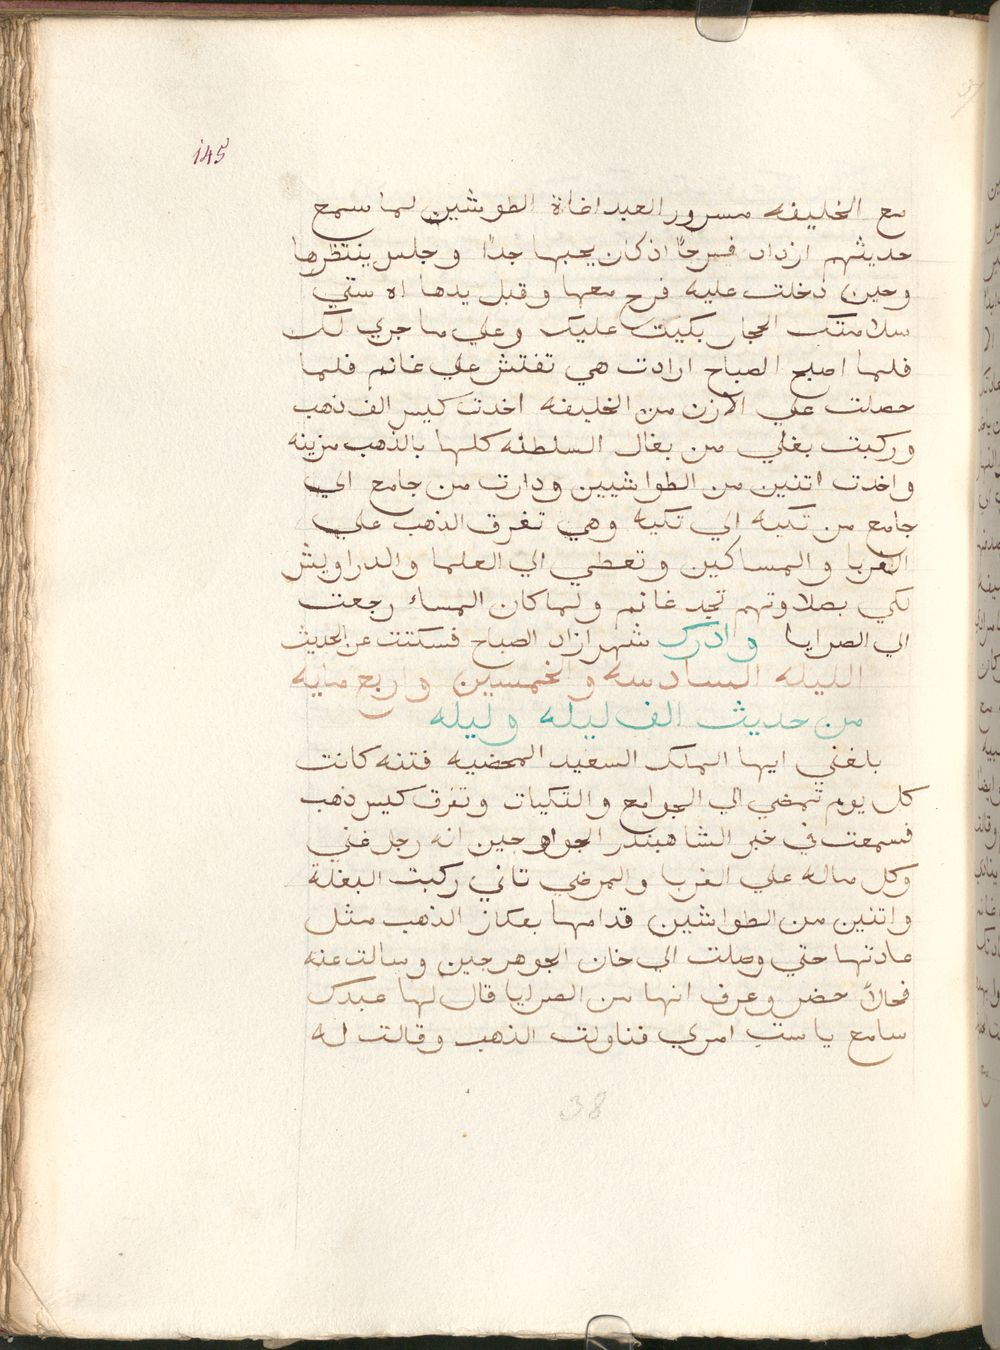 145
مع الخليفه مسرور العبد اغاة الطوشين لما سمع
حديثهم ازداد فرحًا اذ كان يحبها جدًا وجلس ينتظرها
وحين دخلت عليه فرح معها وقبل يدها اه ستي
سلامتك الحجار بكيت عليك وعلي ما جري لك
فلما اصبح الصباح ارادت هي تفتش علي غانم فلما
حصلت علي الازن من الخليفه اخدت كيس الف ذهب
وركبت بغلي من بغال السلطنه كلها بالذهب مزينه
واخدت اتنين من الطواشيين ودارت من جامع الي
جامع من تكيه الي تكيه وهي تفرق الذهب علي
الغربا والمساكين وتعطي الي العلما والدراويش
لكي بصلاوتهم تجد غانم ولما كان المساء رجعت
الي الصرايا وادرك شهرازاد الصباح فسكتت عن الحديث
الليله السادسه والخمسين واربع مايه
من حديث الف ليله وليله
بلغني ايها الملك السعيد المحضيه فتنه كانت
كل يوم تمضي الي الجوامع والتكيات وتفرق كيس ذهب
فسمعت في خبر الشاهبندر الجواهرجين انه رجل غني
وكل ماله علي الغربا والمرضي تاني ركبت البغلة
واتنين من الطواشين قدامها بعكاز الذهب مثل
عادتها حتي وصلت الي خان الجوهرجين وسالت عنه
فحالاً حضر وعرف انها من الصرايا قال لها عبدك
سامع يا ست امري فناولت الذهب وقالت له
38